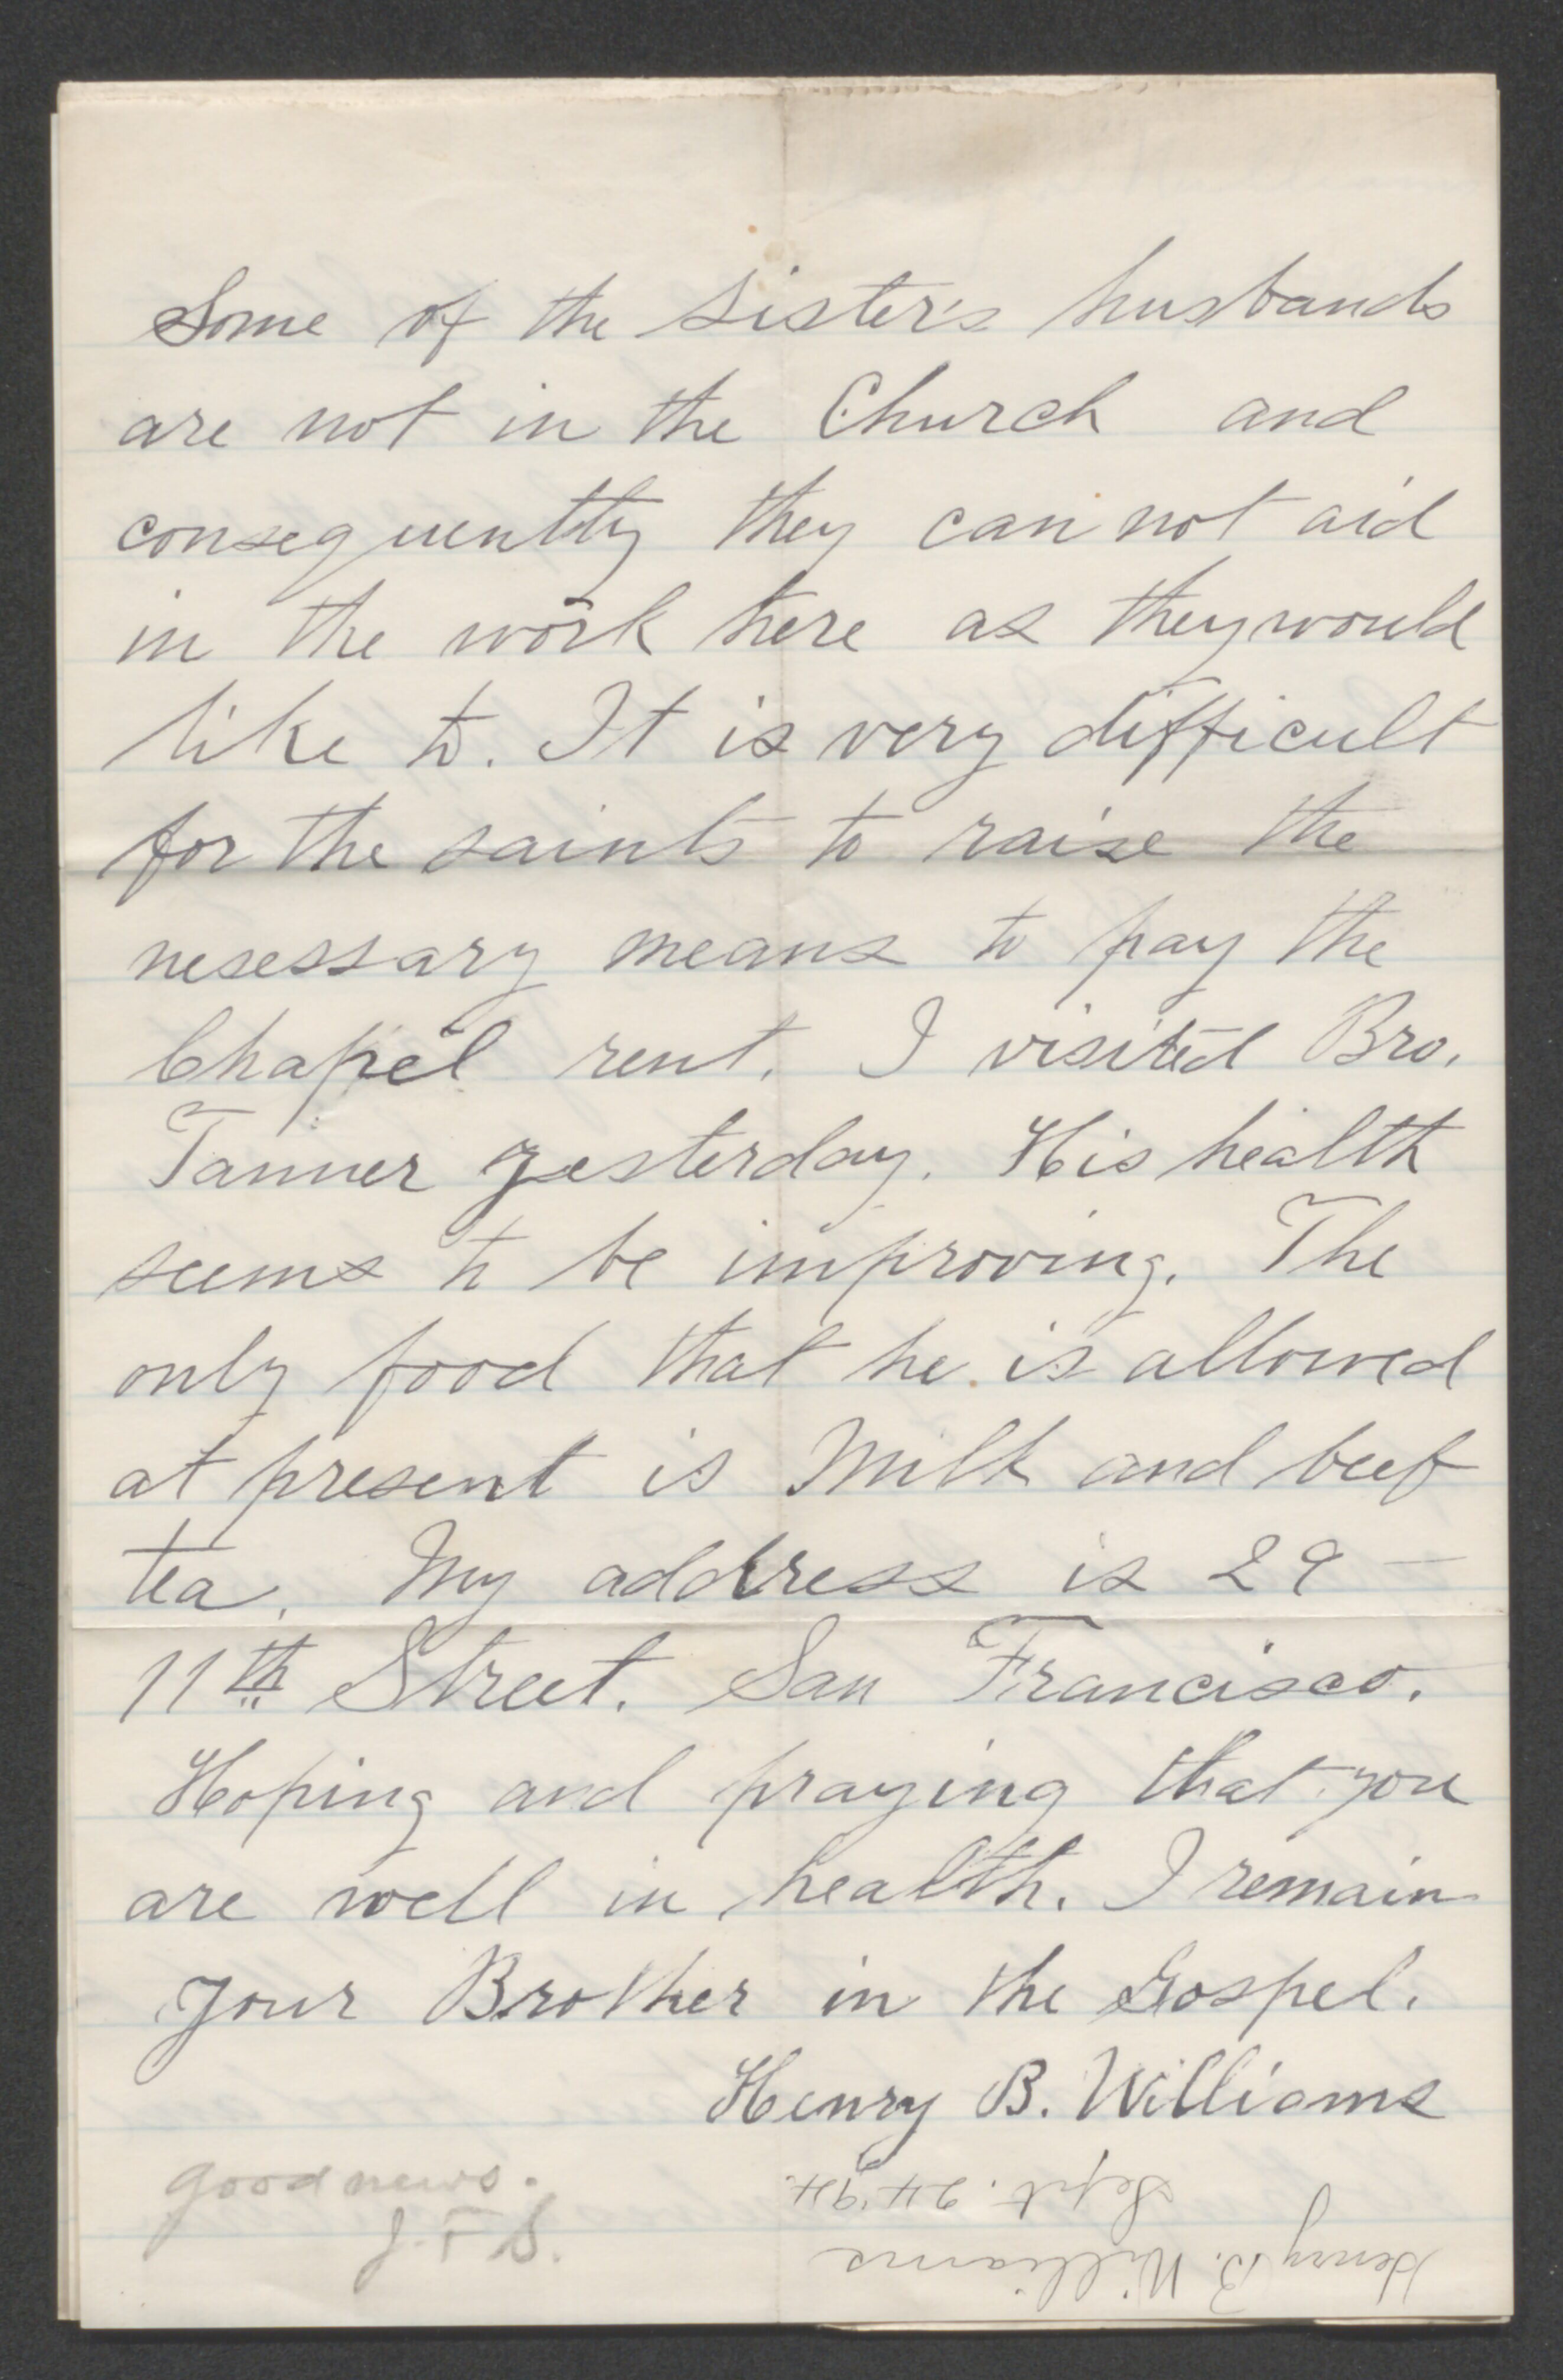 Some of the sister's husbands
are not in the Church and
consequently they can not aid
in the work here as they would
like to. It is very difficult
for the saints to raise the
nesessary means to pay the
Chapel rent. I visited Bro.
Tanner yesterday. His health
seems to be improving. The
only food that he is allowed
at present is Milk and beef
tea. My address is 29 —
11th Street. San Francisco.
Hoping and praying that you
are well in health. I remain
your Brother in the Gospel.
Henry B. Williams
good news.
J. F. S.
Henry B. Williams
Sept. 24 '94.